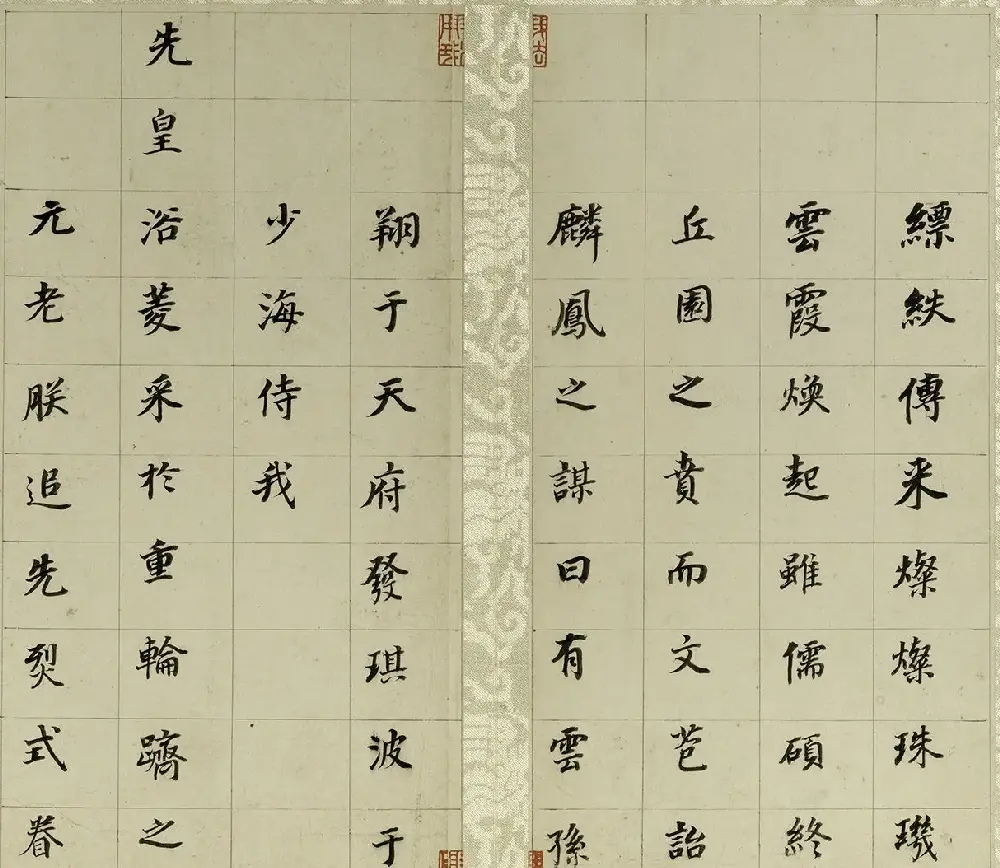 縹紩傳来燦燦珠璣
雲霞煥起雖儒碩終
丘園之賁而文芑詒
麟鳳之謀曰有雲孫
翔于天府發琪波于
少海侍我
先皇浴菱采於重輪躋之
元老朕追先烈式眷